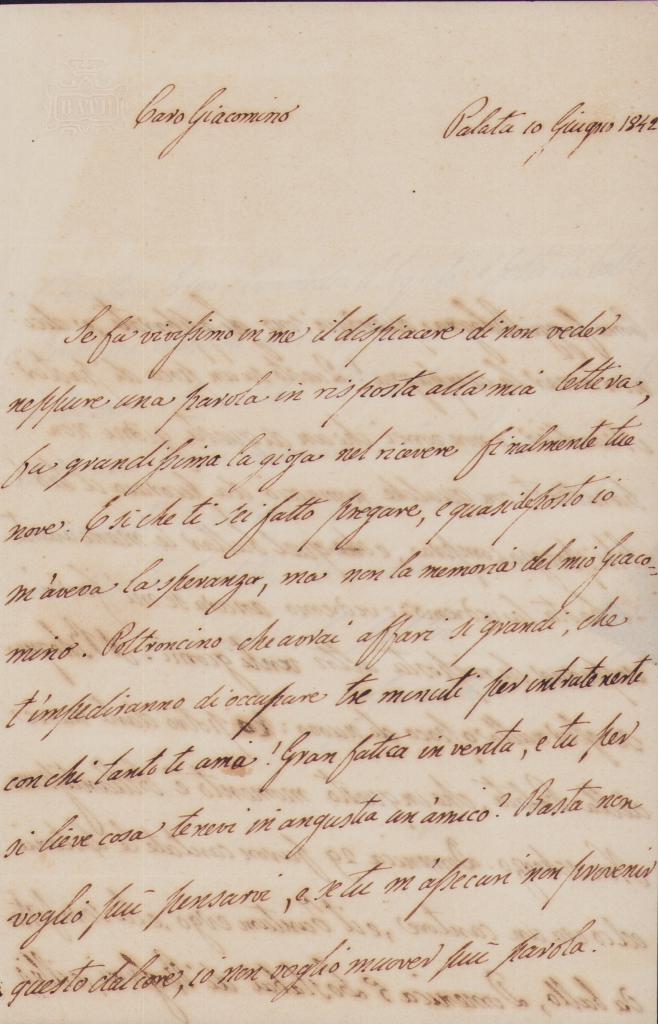 BATH
Caro Giacomino
Palata 10 Giugno 1842
Se fu vivissimo in me il dispiacere di non veder
neppure una parola in risposta alla mia lettera,
fu grandissima la gioja nel ricevere finalmente tue
nove. E si che ti sei fatto pregare, e quasi deposto io
m'aveva la speranza, ma non la memoria del mio Giaco-
mino. Poltroncino che avrai affari si grandi, che
t'impediranno di occupare tre minuti per intratenerti
con chi tanto ti ama! Gran fatica in verita, e tu per
si lieve cosa tenevi in angustia un'amico? Basta non
voglio più pensarvi, e se tu m'assecuri non provenir
questo dal core, io non voglio muover più parola.